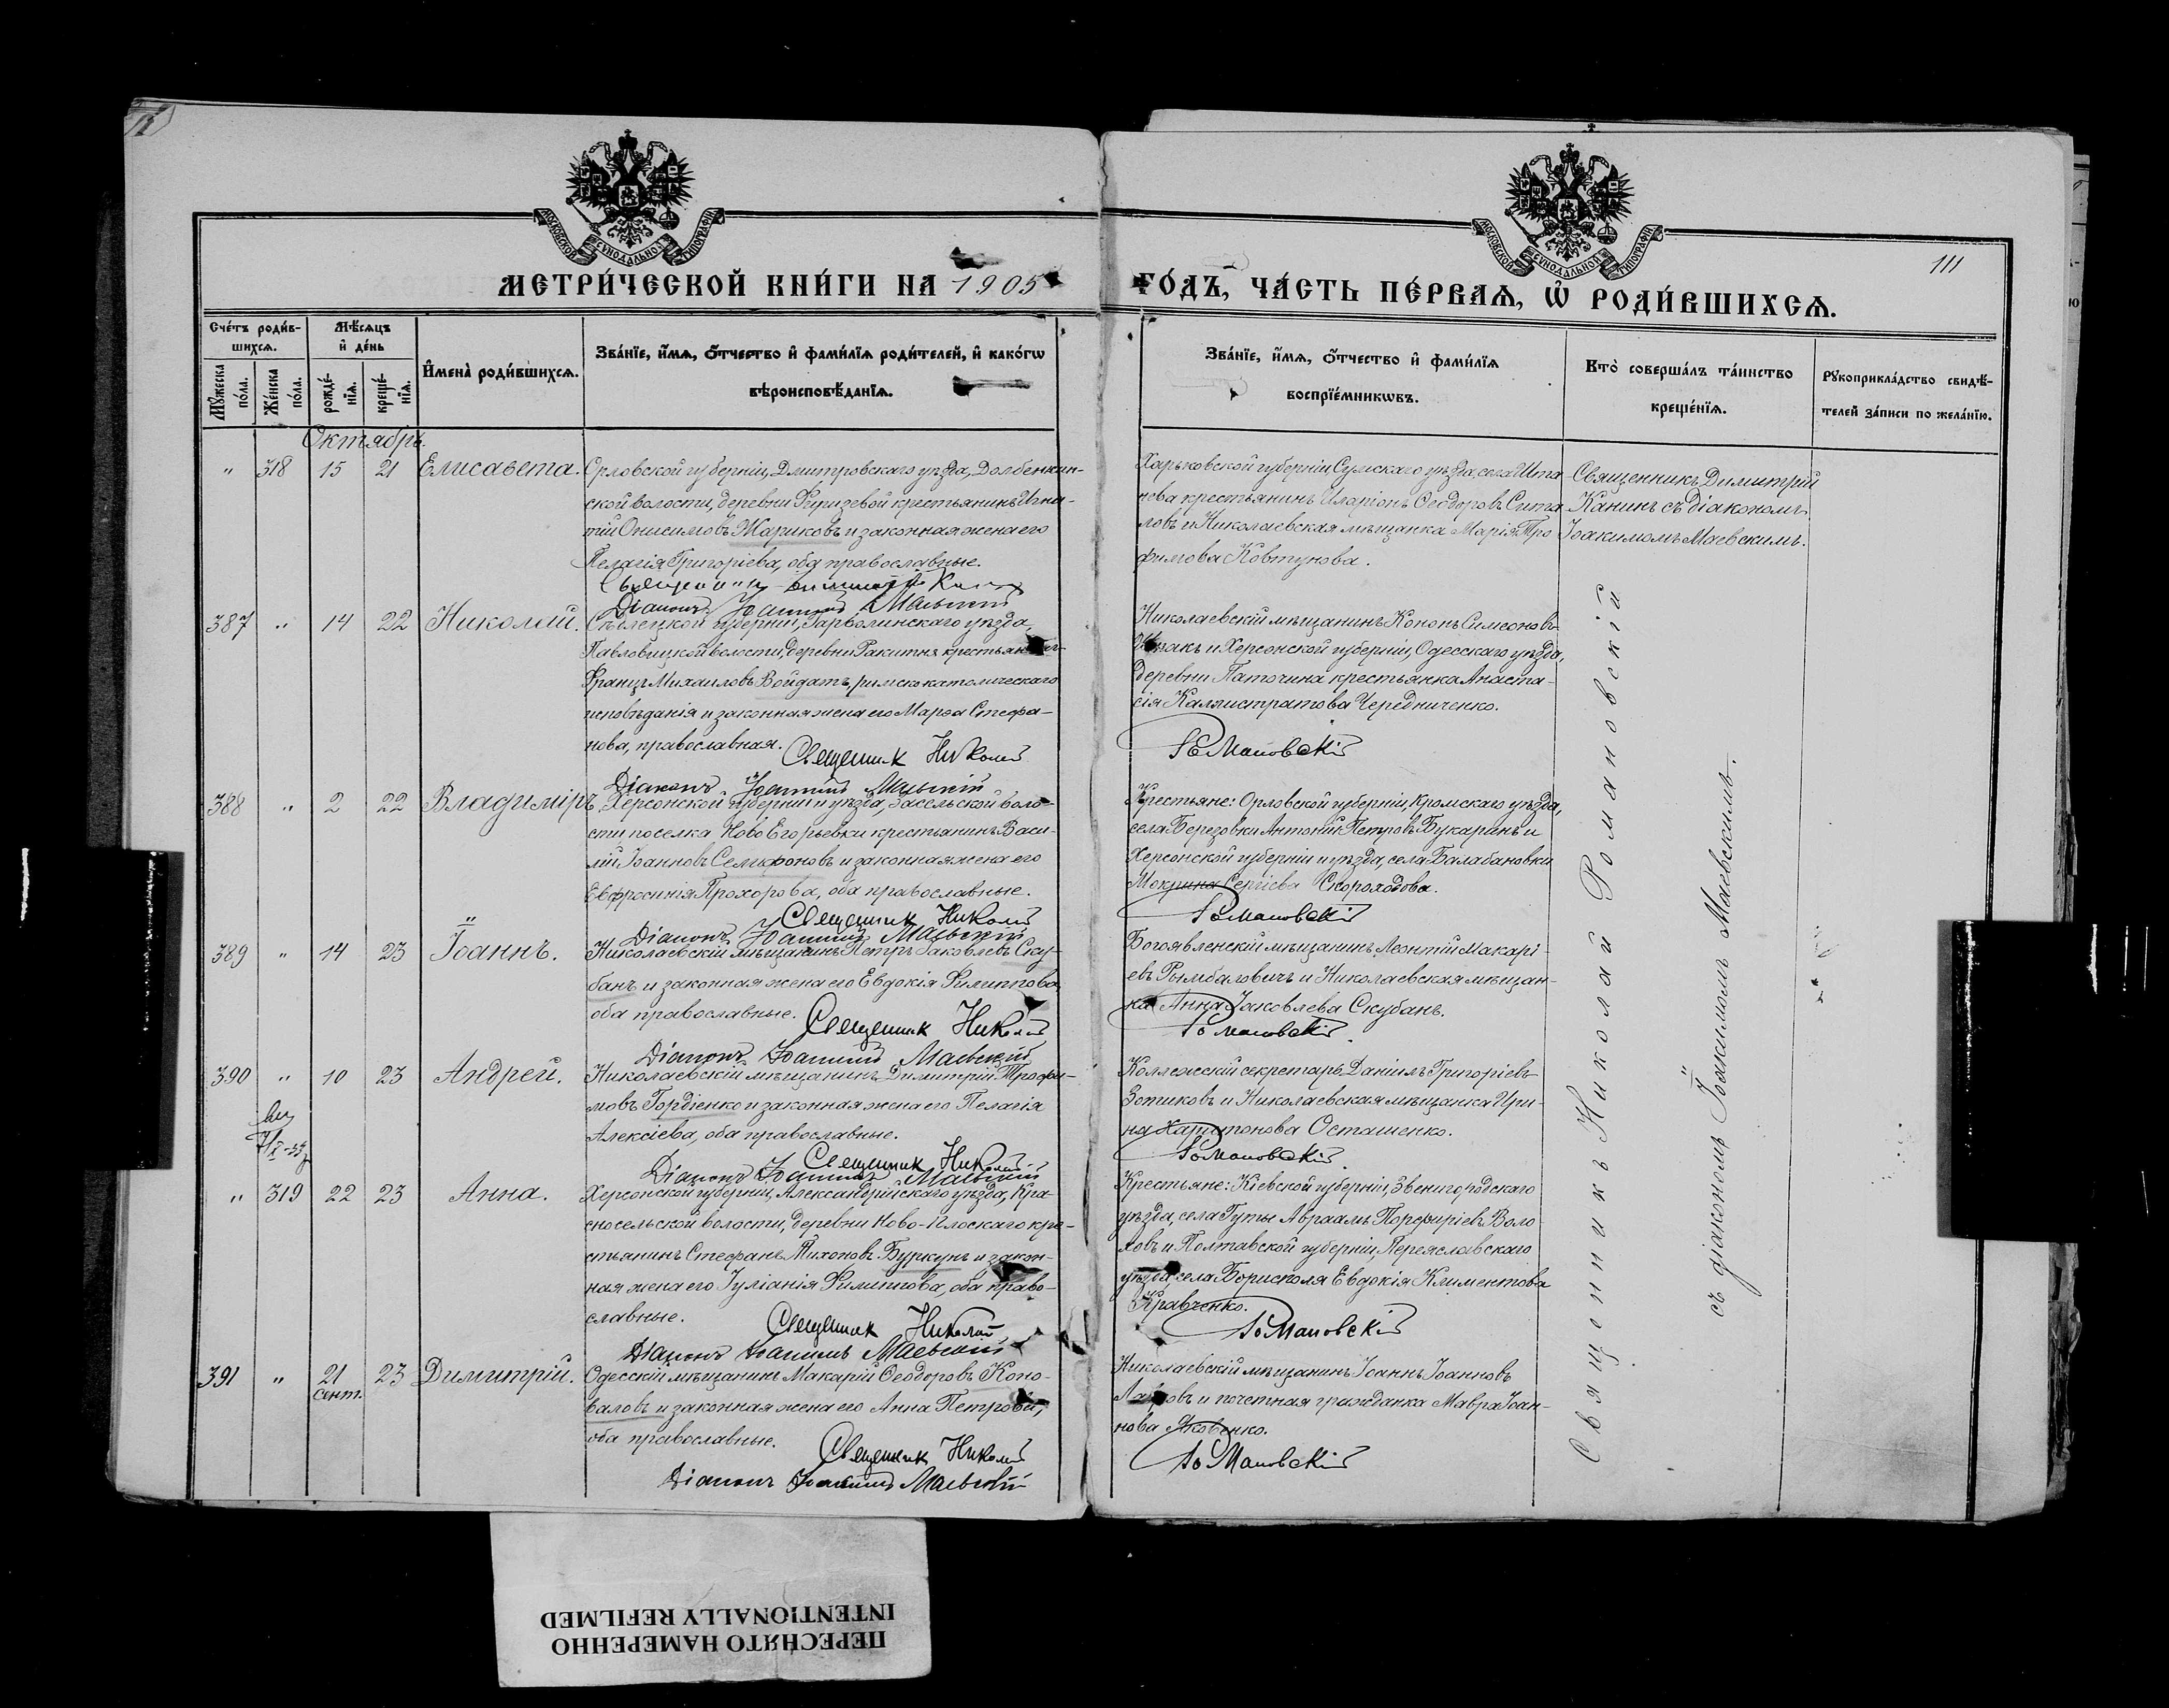 111
МОСКОВСКОЙ СѴНОДАЛЬНОЙ ТИПОГРАФІИ
МОСКОВСКОЙ СѴНОДАЛЬНОЙ ТИПОГРАФІИ
МЕТРИ́ЧЕСКОЙ КНИ́ГИ НА 1905
ГО́ДЪ, ЧА́СТЬ ПЕ́РВАѦ, Ѡ҆ РОДИ́ВШИХСѦ.
Сче́тъ роди́в-
шихсѧ.
Мꙋ́жеска по́ла.
Же́нска по́ла.
Мѣ́сѧцъ
и҆ де́нь
рожде́-
нїѧ.
креще́-
нїѧ.
И҆мена̀ роди́вшихсѧ.
Зва́нїе, и҆́мѧ, ѻ҆́тчество и҆ фами́лїѧ роди́телей, и҆ како́гѡ
вѣроисповѣ́данїѧ.
Зва́нїе, и҆́мѧ, ѻ҆́тчество и҆ фами́лїѧ
воспрїе́мникѡвъ.
Кто̀ соверша́лъ та́инство
креще́нїѧ.
Рꙋкоприкла́дство свидѣ́-
телей за́писи по жела́нїю.
Октябрь.
" 318 15 21 Елисавета.
Орловской губерніи, Дмитровскаго уѣзда, Долбенкин-
ской волости, деревни крестьянинъ Игна-
тій Онисимовъ Жариковъ и законная жена его
Пелагія Григоріева, оба православные.
Священникъ Димитрій Канинъ
Діаконъ Іоакимъ Маевскій
Харьковской губерніи Сумскаго уѣзда, села
крестьянинъ Иларіонъ Ѳеодоровъ Сита-
ловъ и Николаевская мѣщанка Марія Тро
фимова Ковтунова.
Священникъ Димитрій
Канинъ съ діакономъ
Іоакимомъ Маевскимъ.
387 " 14 22 Николай.
Сѣдлецкой губерніи, Гарволинскаго уѣзда,
Павловицкой волости, деревни Ракитня крестьянинъ
Францъ Михаиловъ Войдатъ, римско католическаго
исповѣданія и законная жена его Марѳа Стефа-
нова, православная. Священник Николай
Діаконъ Іоакимъ Маевскій
Николаевскій мѣщанинъ Кононъ Симеоновъ
и Херсонской губерніи, Одесскаго уѣзда,
деревни Паточина крестьянка Анаста-
сія Каллистратова Чередниченко.
Романовскій
388 " 2 22 Владиміръ.
Херсонской губерніи и уѣзда, Засельской воло-
сти, поселка Ново Егорьевки крестьянинъ Васи-
лій Іоанновъ Селифоновъ и законная жена его
Евфросинія Прохорова, оба православные.
Священник Николай
Діаконъ Іоакимъ Маевскій
Крестьяне: Орловской губерніи, Кромскаго уѣзда,
села Березовки Антоній Петровъ Букаринъ и
Херсонской губерніи и уѣзда, села Балабановки
Мокрина Сергіева Скороходова.
Романовскій
389 " 14 23 Іоаннъ.
Николаевскій мѣщанинъ Петръ Іаковлевъ Ску-
банъ и законная жена его Евдокія Филиппова,
оба православные. Священник Николай
Діаконъ Іоакимъ Маевскій
Богоявленскій мѣщанинъ Леонтій Макарі-
евъ Рымбаловичъ и Николаевская мѣщан-
ка Анна Іаковлева Скубанъ.
Романовскій
390 " 10 23 Андрей.
Николаевскій мѣщанинъ Димитрій Трофи-
мовъ Гордіенко и законная жена его Пелагія
Алексіева, оба православные.
Священник Николай
Діаконъ Іоакимъ Маевскій
Коллежскій секретарь Даніилъ Григоріевъ
Зотиковъ и Николаевская мѣщанка Ири-
на Харитонова Осташенко.
Романовскій
" 319 22 23 Анна.
Херсонской губерніи, Александрійскаго уѣзда, Кра-
сносельской волости, деревни Ново-Плоскаго кре-
стьянинъ Стефанъ Тихоновъ Буркунъ и закон-
ная жена его Іуліанія Филиппова, оба право-
славные. Священник Николай
Діаконъ Іоакимъ Маевскій
Крестьяне: Кіевской губерніи, Звенигородскаго
уѣзда, села Гуты Авраамъ Порфиріевъ Воло
ховъ и Полтавской губерніи, Переяславскаго
уѣзда, села Борисполя Евдокія Климентова
Кравченко.
Романовскій
391 " 21 сент. 23 Димитрій.
Одесскій мѣщанинъ Макарій Ѳеодоровъ Коно-
валовъ и законная жена его Анна Петрова,
оба православные. Священник Николай
Діаконъ Іоакимъ Маевскій
Николаевскій мѣщанинъ Іоаннъ Іоанновъ
и почетная гражданка Мавра Іоан-
нова Яковенко.
Романовскій
Священникъ Николай Романовскій
съ діакономъ Іоакимомъ Маевскимъ.
ПЕРЕСНЯТО НАМЕРЕННО
INTENTIONALLY REFILMED